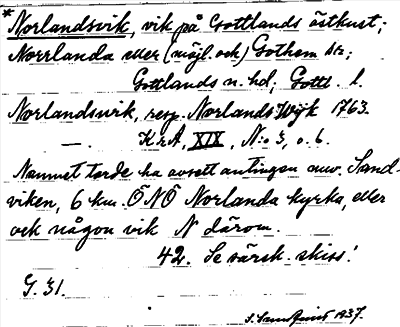 * Norlandsvik, vik på Gottlands östkust;
Norrlanda eller (möjl. och) Gothem sn;
Gottlands n. hd; Gottl. l.
Norlandsvik, resp. Norlands Wijk 1763.
—. KrA, XIX, N:o 3, o. 6.
Namnet torde ha avsett antingen nuv. Sand-
viken, 6 km. ÖNÖ Norlanda kyrka, eller
ock någon vik N därom.
42. Se särsk. skiss!
G. 31.
1937.